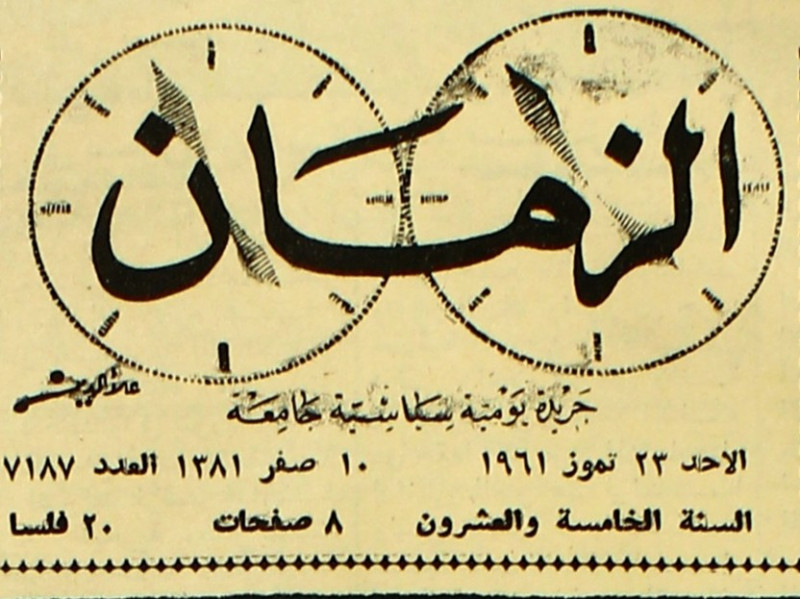 الزمان
علاء الدين
جريدة يومية سياسية جامعة
الاحد ٢٣ تموز ١٩٦١ ١٠ صفر ١٣٨١ العدد ٧١٨٧
السنة الخامسة والعشرون ٨ صفحات ٢٠ فلسا